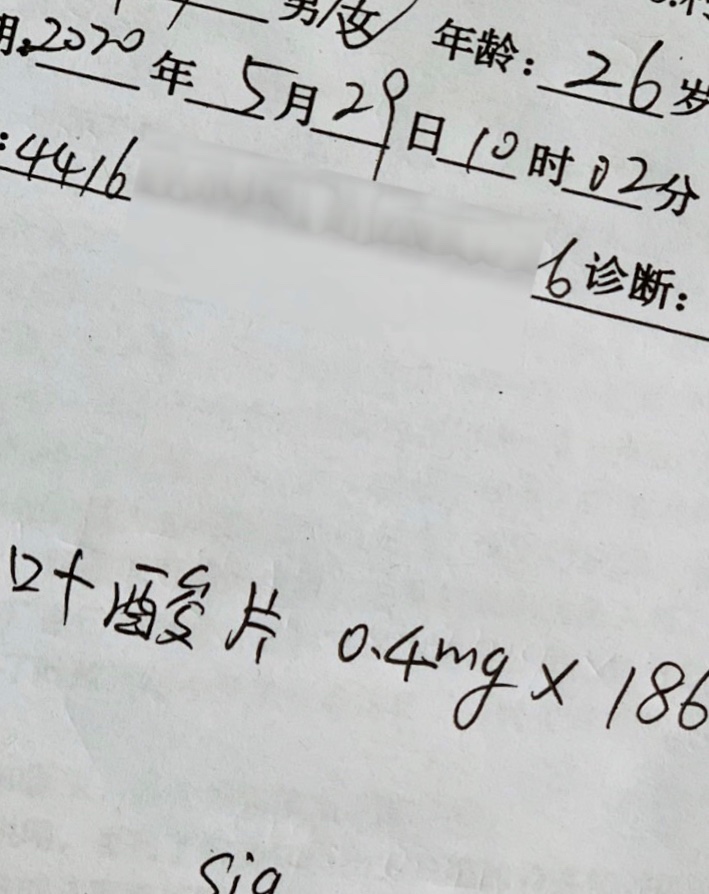 男/女 年龄:26岁
期:2020年5月29日10时02分
:4416
6诊断:
叶酸片 0.4mg × 186
Sig